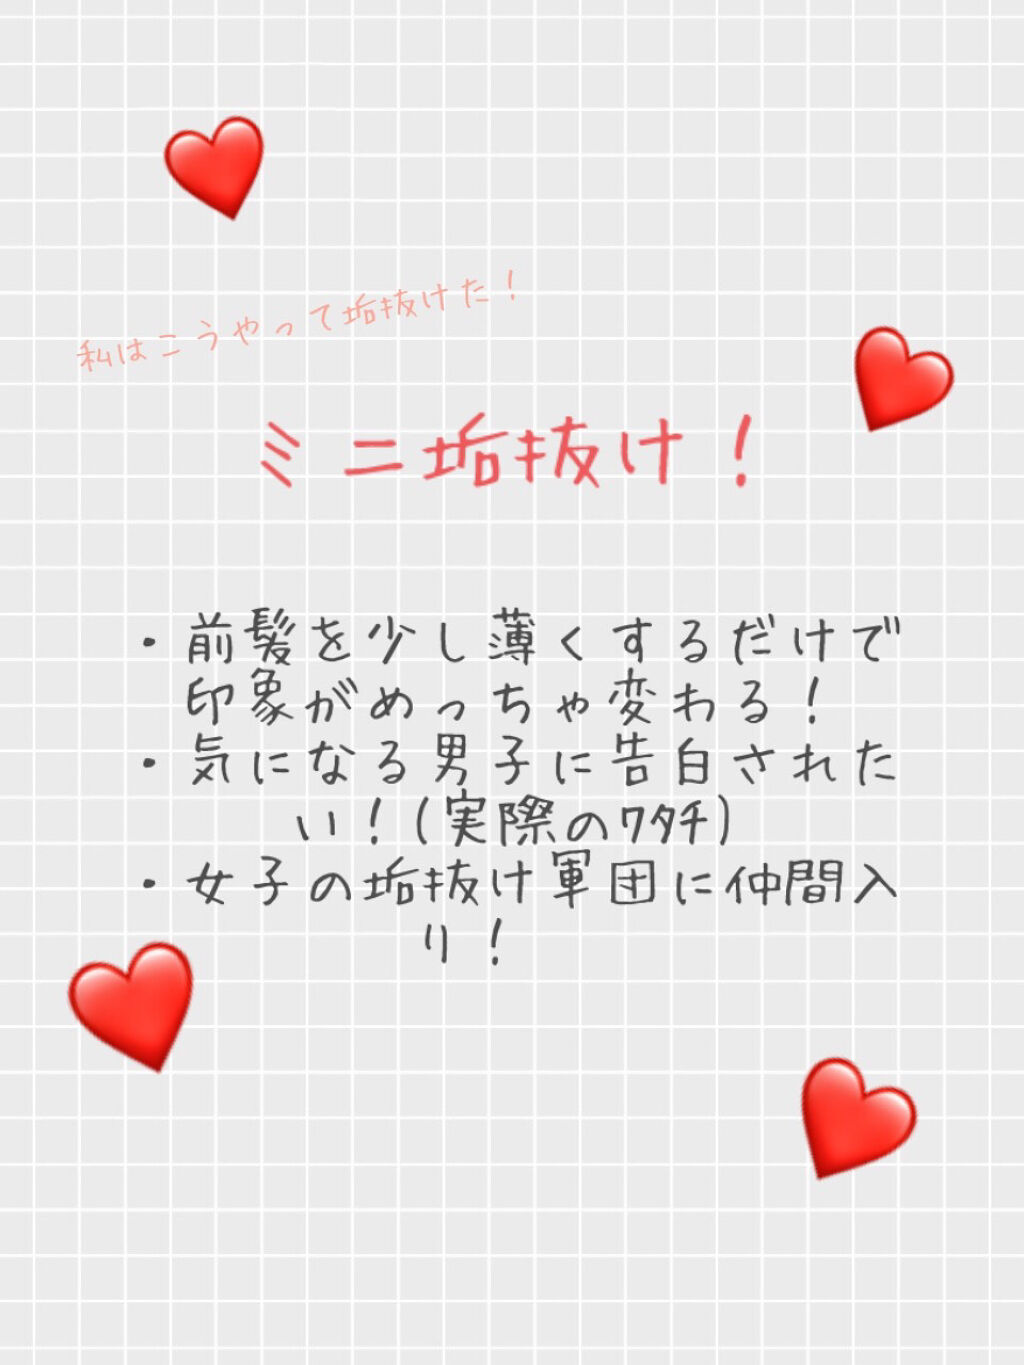 私はこうやって垢抜けた！
ミニ垢抜け！
・前髪を少し薄くするだけで
印象がめっちゃ変わる！
・気になる男子に告白された
い！(実際のﾜﾀﾁ)
・女子の垢抜け軍団に仲間入
り！